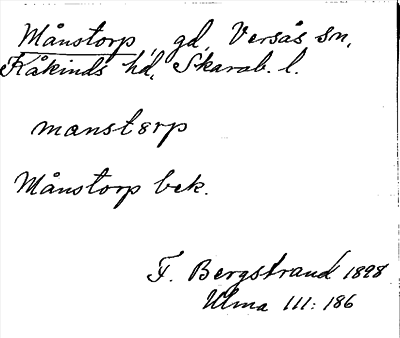 Månstorp, gd, Versås sn,
Kåkinds hd, Skarab. l.
manstərp
Månstorp bek.
F. Bergstrand 1898
Ulma 111:186